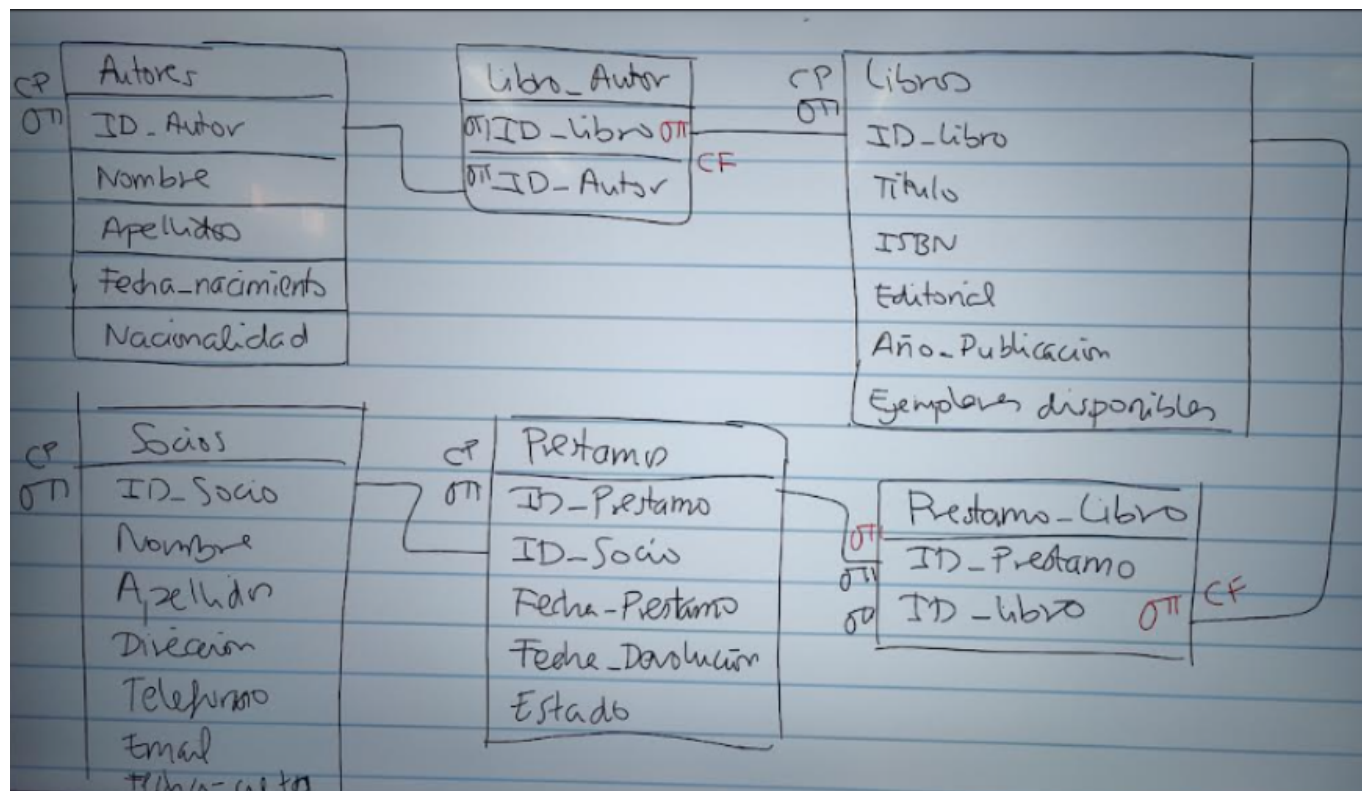 CP
Autores
ID_Autor
Nombre
Apellidos
Fecha_nacimiento
Nacionalidad
Libro_Autor
ID_Libro
CF
ID_Autor
CP
Libros
ID_Libro
Titulo
ISBN
Editorial
Año_Publicación
Ejemplares disponibles
CP
Socios
ID_Socio
Nombre
Apellidos
Dirección
Telefono
Email
CP
Prestamo
ID_Prestamo
ID_Socio
Fecha_Prestamo
Fecha_Devolución
Estado
Prestamo_Libro
ID_Prestamo
ID_libro
CF